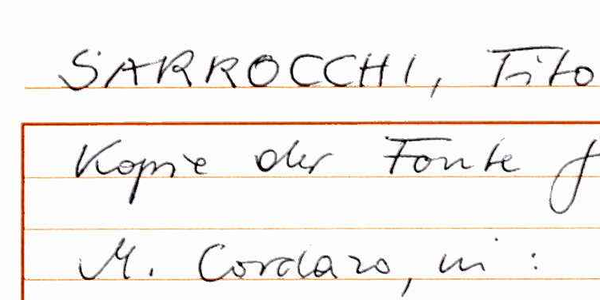 SARROCCHI, Tito
Kopie der Fonte
M. Cordaro, in: